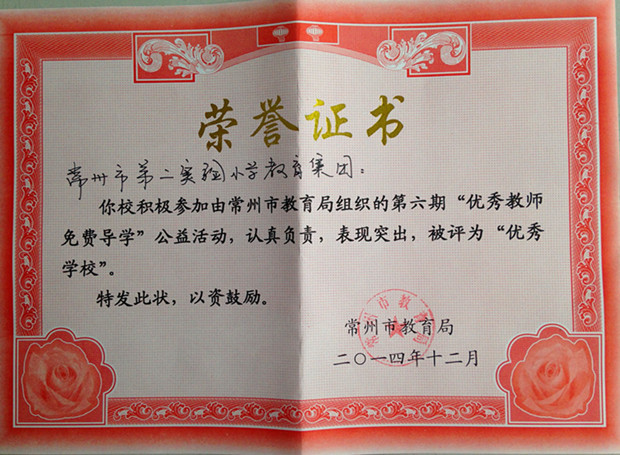 荣誉证书
常州市第二实验小学教育集团：
你校积极参加由常州市教育局组织的第六期“优秀教师
免费导学”公益活动，认真负责，表现突出，被评为“优秀
学校”。
特发此状，以资鼓励。
常州市教育局
二〇一四年十二月
常州市教育局